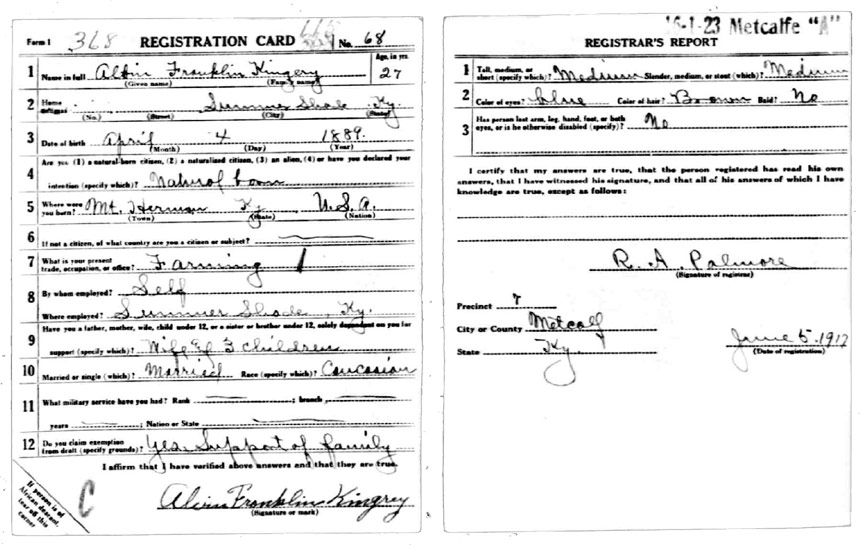 Form 1 368 REGISTRATION CARD No. 68
1 Name in full Albin Franklin Kingery Age, in yrs. 27
(Given name) (Family name)
2 Home address Summer Shade Ky
(No.) (Street) (City) (State)
3 Date of birth April 4 1889.
(Month) (Day) (Year)
Are you (1) a natural-born citizen, (2) a naturalized citizen, (3) an alien, (4) or have you declared your
4 intention (specify which)? Natural born
5 Where were you born? Mt. Herman Ky U.S.A.
(Town) (State) (Nation)
6 If not a citizen, of what country are you a citizen or subject?
7 What is your present trade, occupation, or office? Farming
8 By whom employed? Self
Where employed? Summer Shade, Ky.
Have you a father, mother, wife, child under 12, or a sister or brother under 12, solely dependent on you for
9 support (specify which)? Wife & 3 children
10 Married or single (which)? Married Race (specify which)? Caucasian
11 What military service have you had? Rank ; branch
years ; Nation or State
12 Do you claim exemption from draft (specify grounds)? Yes, Support of family
I affirm that I have verified above answers and that they are true.
Alvin Franklin Kingrey
(Signature or mark)
If person is of
African descent,
tear off this
corner
C
16-1-23 Metcalfe "A"
REGISTRAR'S REPORT
1 Tall, medium, or short (specify which)? Medium Slender, medium, or stout (which)? Medium
2 Color of eyes? blue Color of hair? Brown Bald? No
3 Has person lost arm, leg, hand, foot, or both eyes, or is he otherwise disabled (specify)? No
I certify that my answers are true, that the person registered has read his own
answers, that I have witnessed his signature, and that all of his answers of which I have
knowledge are true, except as follows:
R. A. Palmore
(Signature of registrar)
Precinct 7
City or County Metcalf
State Ky.
June 5, 1917
(Date of registration)